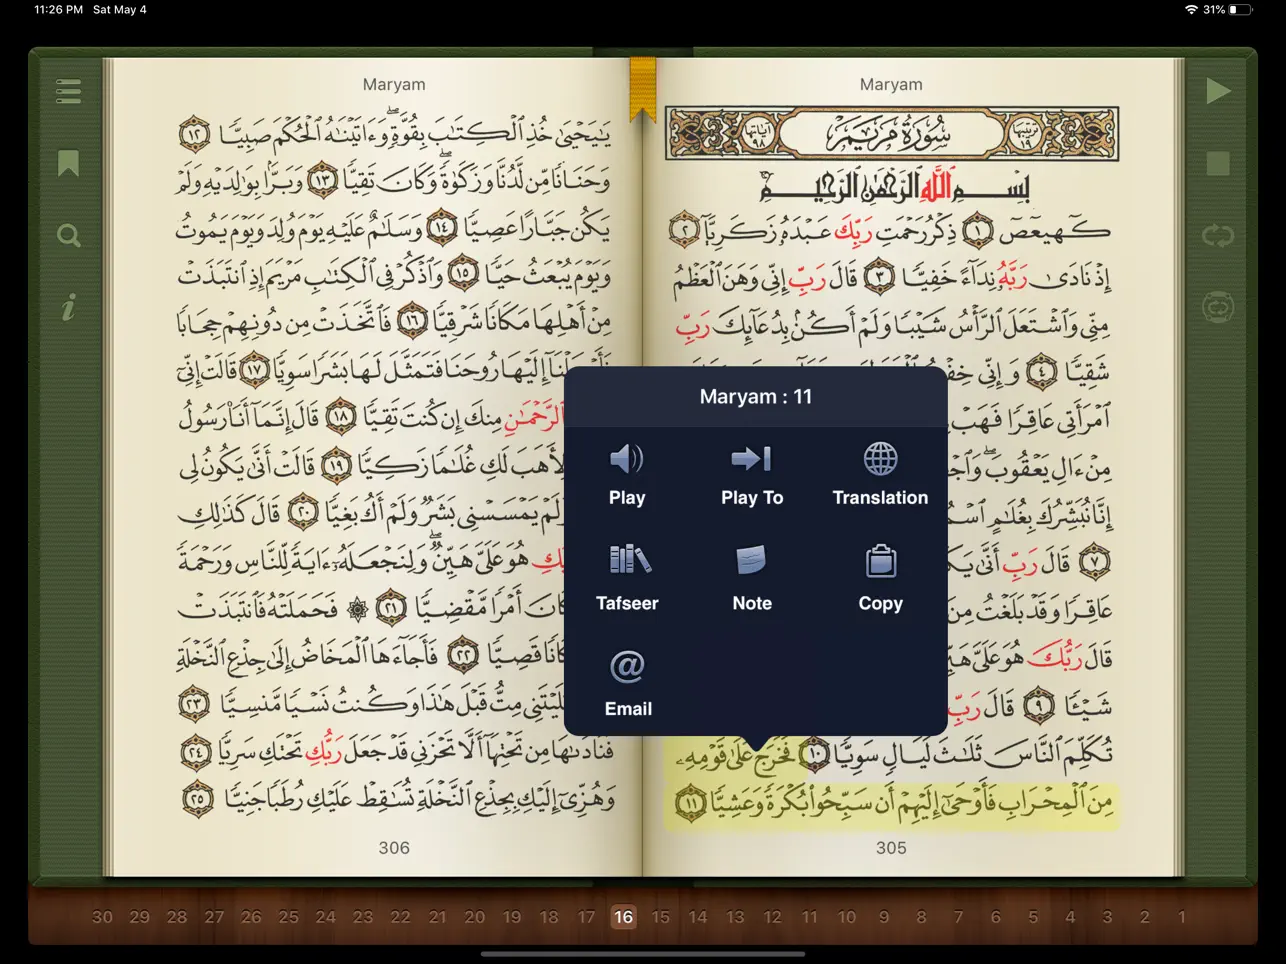 11:26 PM Sat May 4
31%
Maryam
سُورَةُ مَرْيَمَ
ترتيبها ١٩
آياتها ٩٨
بِسْمِ اللَّهِ الرَّحْمَٰنِ الرَّحِيمِ
كٓهيعٓصٓ ١ ذِكْرُ رَحْمَتِ رَبِّكَ عَبْدَهُۥ زَكَرِيَّآ ٢
إِذْ نَادَىٰ رَبَّهُۥ نِدَآءً خَفِيًّا ٣ قَالَ رَبِّ إِنِّى وَهَنَ ٱلْعَظْمُ
مِنِّى وَٱشْتَعَلَ ٱلرَّأْسُ شَيْبًا وَلَمْ أَكُنۢ بِدُعَآئِكَ رَبِّ
شَقِيًّا ٤ وَإِنِّى
ٱمْرَأَتِى عَاقِرًا فَهَبْ
مِنْ ءَالِ يَعْقُوبَ
إِنَّا نُبَشِّرُكَ بِغُلَٰمٍ
٧ قَالَ رَبِّ أَنَّىٰ
عَاقِرًا وَقَدْ بَلَغْتُ مِنَ
قَالَ رَبُّكَ هُوَ عَلَىَّ
شَيْـًٔا ٩ قَالَ رَبِّ
تُكَلِّمَ ٱلنَّاسَ ثَلَٰثَ لَيَالٍ سَوِيًّا ١٠ فَخَرَجَ عَلَىٰ قَوْمِهِۦ
مِنَ ٱلْمِحْرَابِ فَأَوْحَىٰٓ إِلَيْهِمْ أَن سَبِّحُوا۟ بُكْرَةً وَعَشِيًّا ١١
305
Maryam
يَٰيَحْيَىٰ خُذِ ٱلْكِتَٰبَ بِقُوَّةٍ وَءَاتَيْنَٰهُ ٱلْحُكْمَ صَبِيًّا ١٢
وَحَنَانًا مِّن لَّدُنَّا وَزَكَوٰةً وَكَانَ تَقِيًّا ١٣ وَبَرًّۢا بِوَٰلِدَيْهِ وَلَمْ
يَكُن جَبَّارًا عَصِيًّا ١٤ وَسَلَٰمٌ عَلَيْهِ يَوْمَ وُلِدَ وَيَوْمَ يَمُوتُ
وَيَوْمَ يُبْعَثُ حَيًّا ١٥ وَٱذْكُرْ فِى ٱلْكِتَٰبِ مَرْيَمَ إِذِ ٱنتَبَذَتْ
مِنْ أَهْلِهَا مَكَانًا شَرْقِيًّا ١٦ فَٱتَّخَذَتْ مِن دُونِهِمْ حِجَابًا
فَأَرْسَلْنَآ إِلَيْهَا رُوحَنَا فَتَمَثَّلَ لَهَا بَشَرًا سَوِيًّا ١٧ قَالَتْ إِنِّىٓ
بِٱلرَّحْمَٰنِ مِنكَ إِن كُنتَ تَقِيًّا ١٨ قَالَ إِنَّمَآ أَنَا۠ رَسُولُ
لِأَهَبَ لَكِ غُلَٰمًا زَكِيًّا ١٩ قَالَتْ أَنَّىٰ يَكُونُ لِى
وَلَمْ يَمْسَسْنِى بَشَرٌ وَلَمْ أَكُ بَغِيًّا ٢٠ قَالَ كَذَٰلِكِ
هُوَ عَلَىَّ هَيِّنٌ وَلِنَجْعَلَهُۥٓ ءَايَةً لِّلنَّاسِ وَرَحْمَةً
أَمْرًا مَّقْضِيًّا ٢١ فَحَمَلَتْهُ فَٱنتَبَذَتْ
قَصِيًّا ٢٢ فَأَجَآءَهَا ٱلْمَخَاضُ إِلَىٰ جِذْعِ ٱلنَّخْلَةِ
مِتُّ قَبْلَ هَٰذَا وَكُنتُ نَسْيًا مَّنسِيًّا ٢٣
فَنَادَىٰهَا مِن تَحْتِهَآ أَلَّا تَحْزَنِى قَدْ جَعَلَ رَبُّكِ تَحْتَكِ سَرِيًّا ٢٤
وَهُزِّىٓ إِلَيْكِ بِجِذْعِ ٱلنَّخْلَةِ تُسَٰقِطْ عَلَيْكِ رُطَبًا جَنِيًّا ٢٥
306
Maryam : 11
Play Play To Translation
Tafseer Note Copy
Email
30 29 28 27 26 25 24 23 22 21 20 19 18 17 16 15 14 13 12 11 10 9 8 7 6 5 4 3 2 1